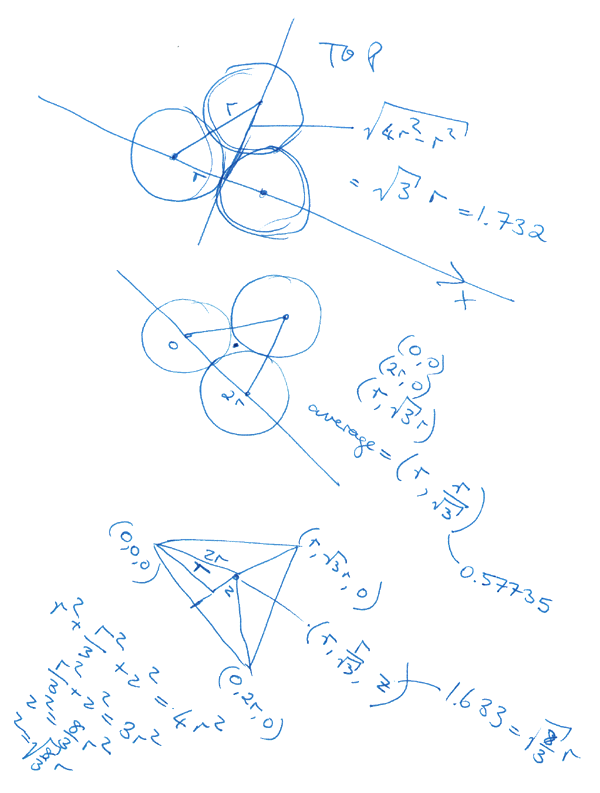 TOP
r
√(4r² - r²)
r
= √3 r = 1.732
x
0
2r
(0, 0)
(2r, 0)
(r, √3 r)
average = (r, r/√3)
0.57735
(0, 0, 0)
2r
r
z
(r, √3 r, 0)
(r, r/√3, z)
1.633 = √(8/3) r
(0, 2r, 0)
r² + r²/3 + z² = 4r²
r²/3 + z² = 3r²
z² = 8/3 r²
z = √(8/3) r